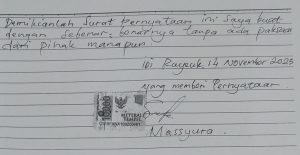 Demikianlah Surat Pernyataan ini Saya buat
dengan Sebenar-benarnya tanpa ada paksaan
dari Pihak manapun.
Idi Rayeuk, 14 November 2025
yang memberi Pernyataan
10000
METERAI
TEMPEL
Massyura.